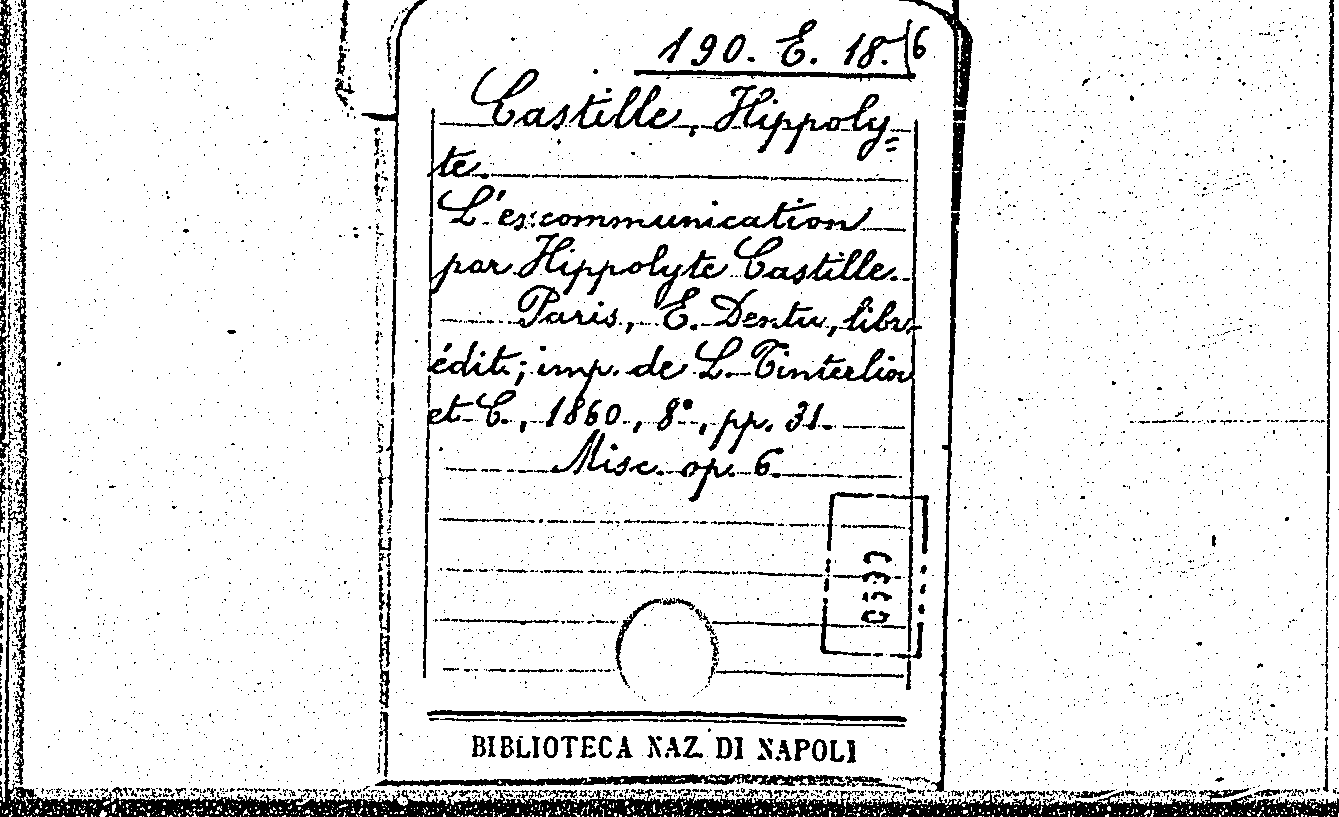 190. E. 18.(6
Castille, Hippoly=
te.
L'excommunication
par Hippolyte Castille.
Paris, E. Dentu, libr.
édit; imp. de L. Tinterlin
et C., 1860, 8°, pp. 31.
Misc. op. 6.
BIBLIOTECA NAZ. DI NAPOLI